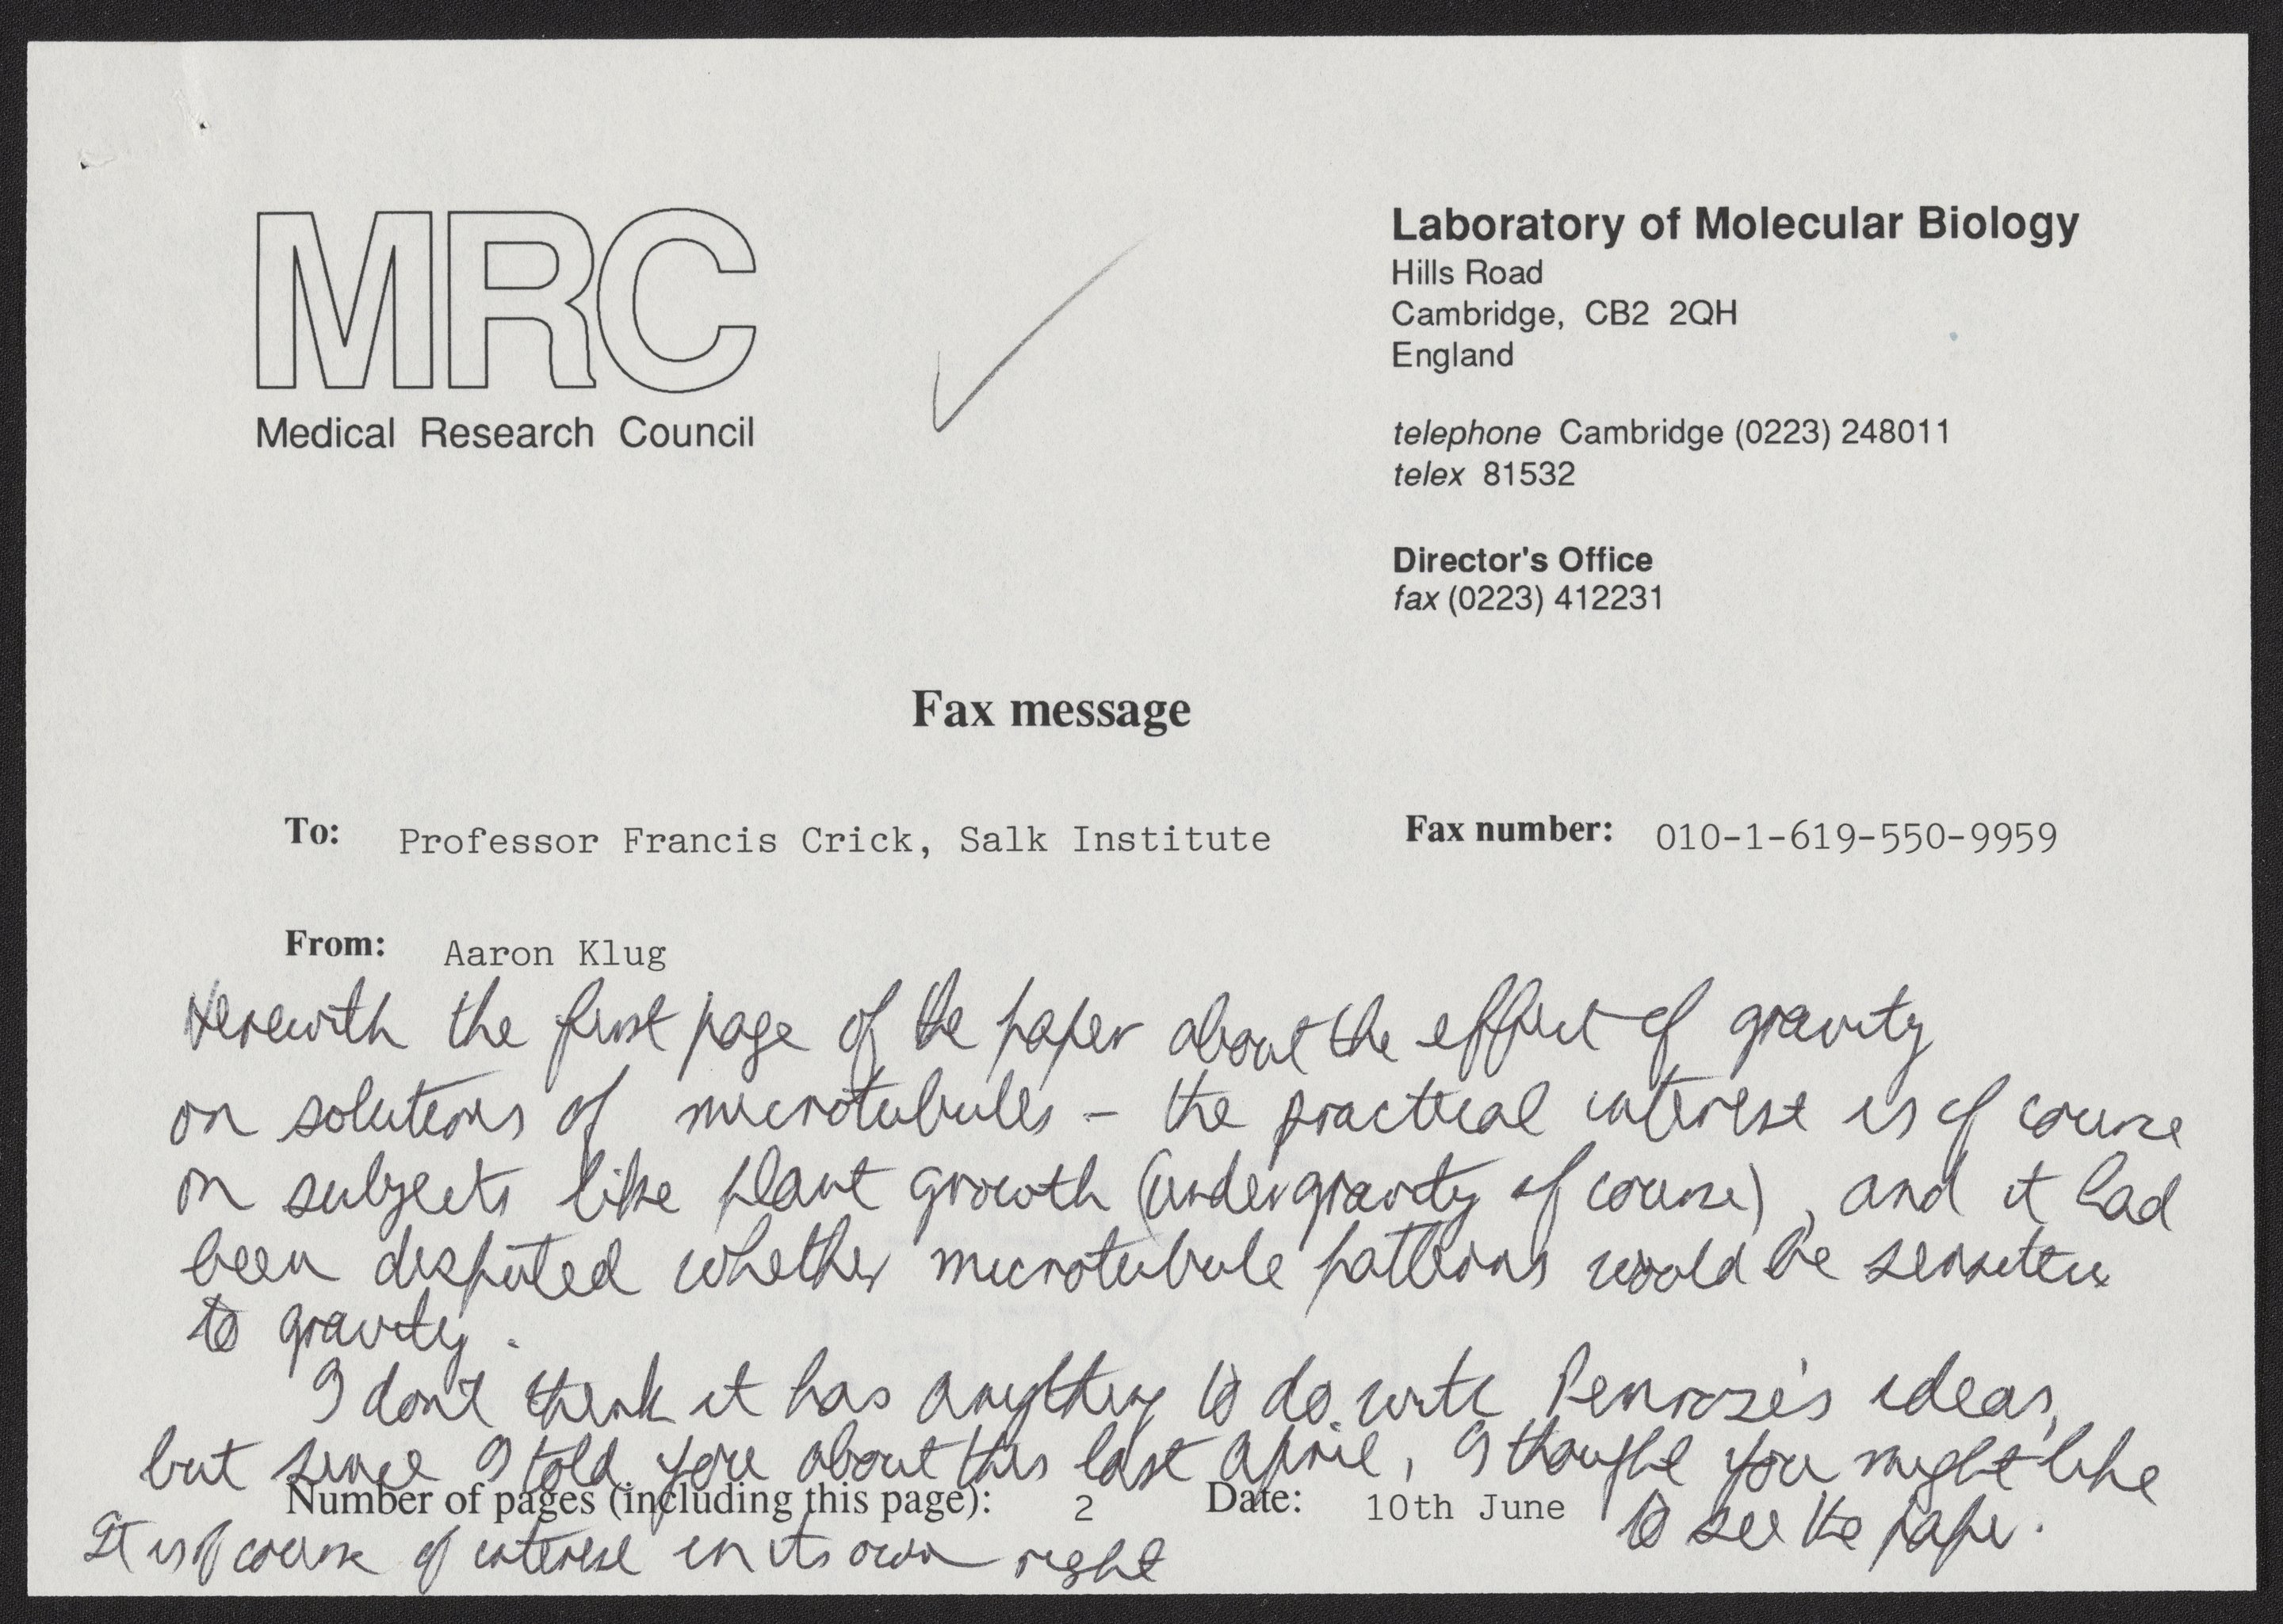 MRC
Medical Research Council
Laboratory of Molecular Biology
Hills Road
Cambridge, CB2 2QH
England
telephone Cambridge (0223) 248011
telex 81532
Director's Office
fax (0223) 412231
Fax message
To: Professor Francis Crick, Salk Institute
Fax number: 010-1-619-550-9959
From: Aaron Klug
Herewith the first page of the paper about the effect of gravity
on solutions of microtubules – the practical interest is of course
on subjects like plant growth (under gravity of course), and it had
been disputed whether microtubule patterns would be sensitive
to gravity.
I don't think it has anything to do with Penrose's ideas,
but since I told you about this last April, I thought you might like
to see the paper.
Number of pages (including this page): 2 Date: 10th June
It is of course of interest in its own right